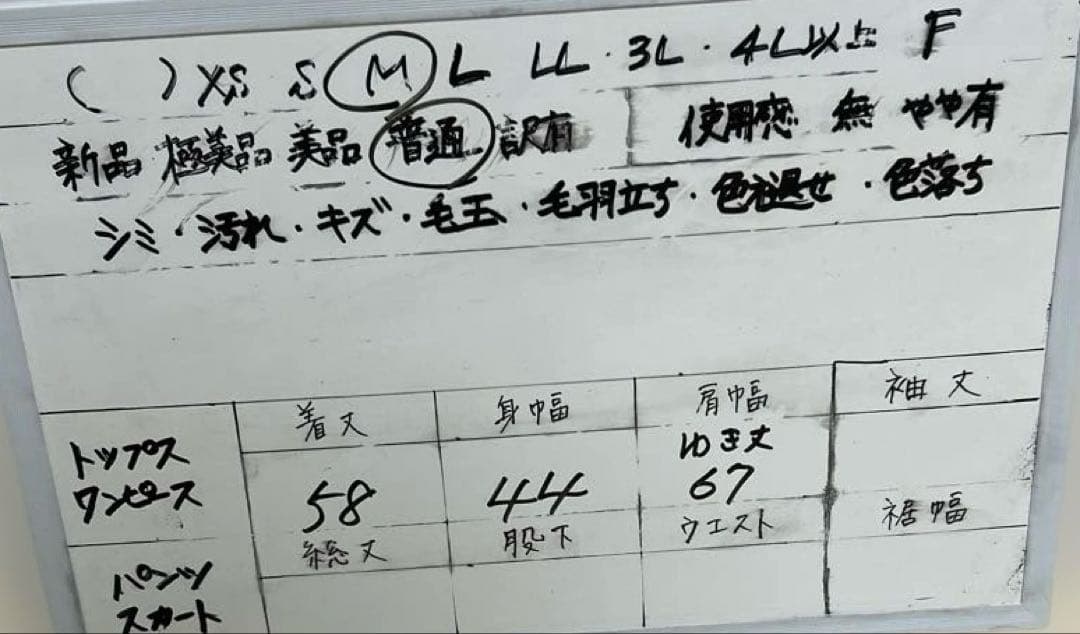 ( ) XS S M L LL・3L・4L以上 F
新品 極美品 美品 普通 訳有 使用感 無 やや有
シミ・汚れ・キズ・毛玉・毛羽立ち・色褪せ・色落ち
着丈 身幅 肩幅 袖丈
トップス
ワンピース
ゆき丈
58 44 67
総丈 股下 ウエスト 裾幅
パンツ
スカート